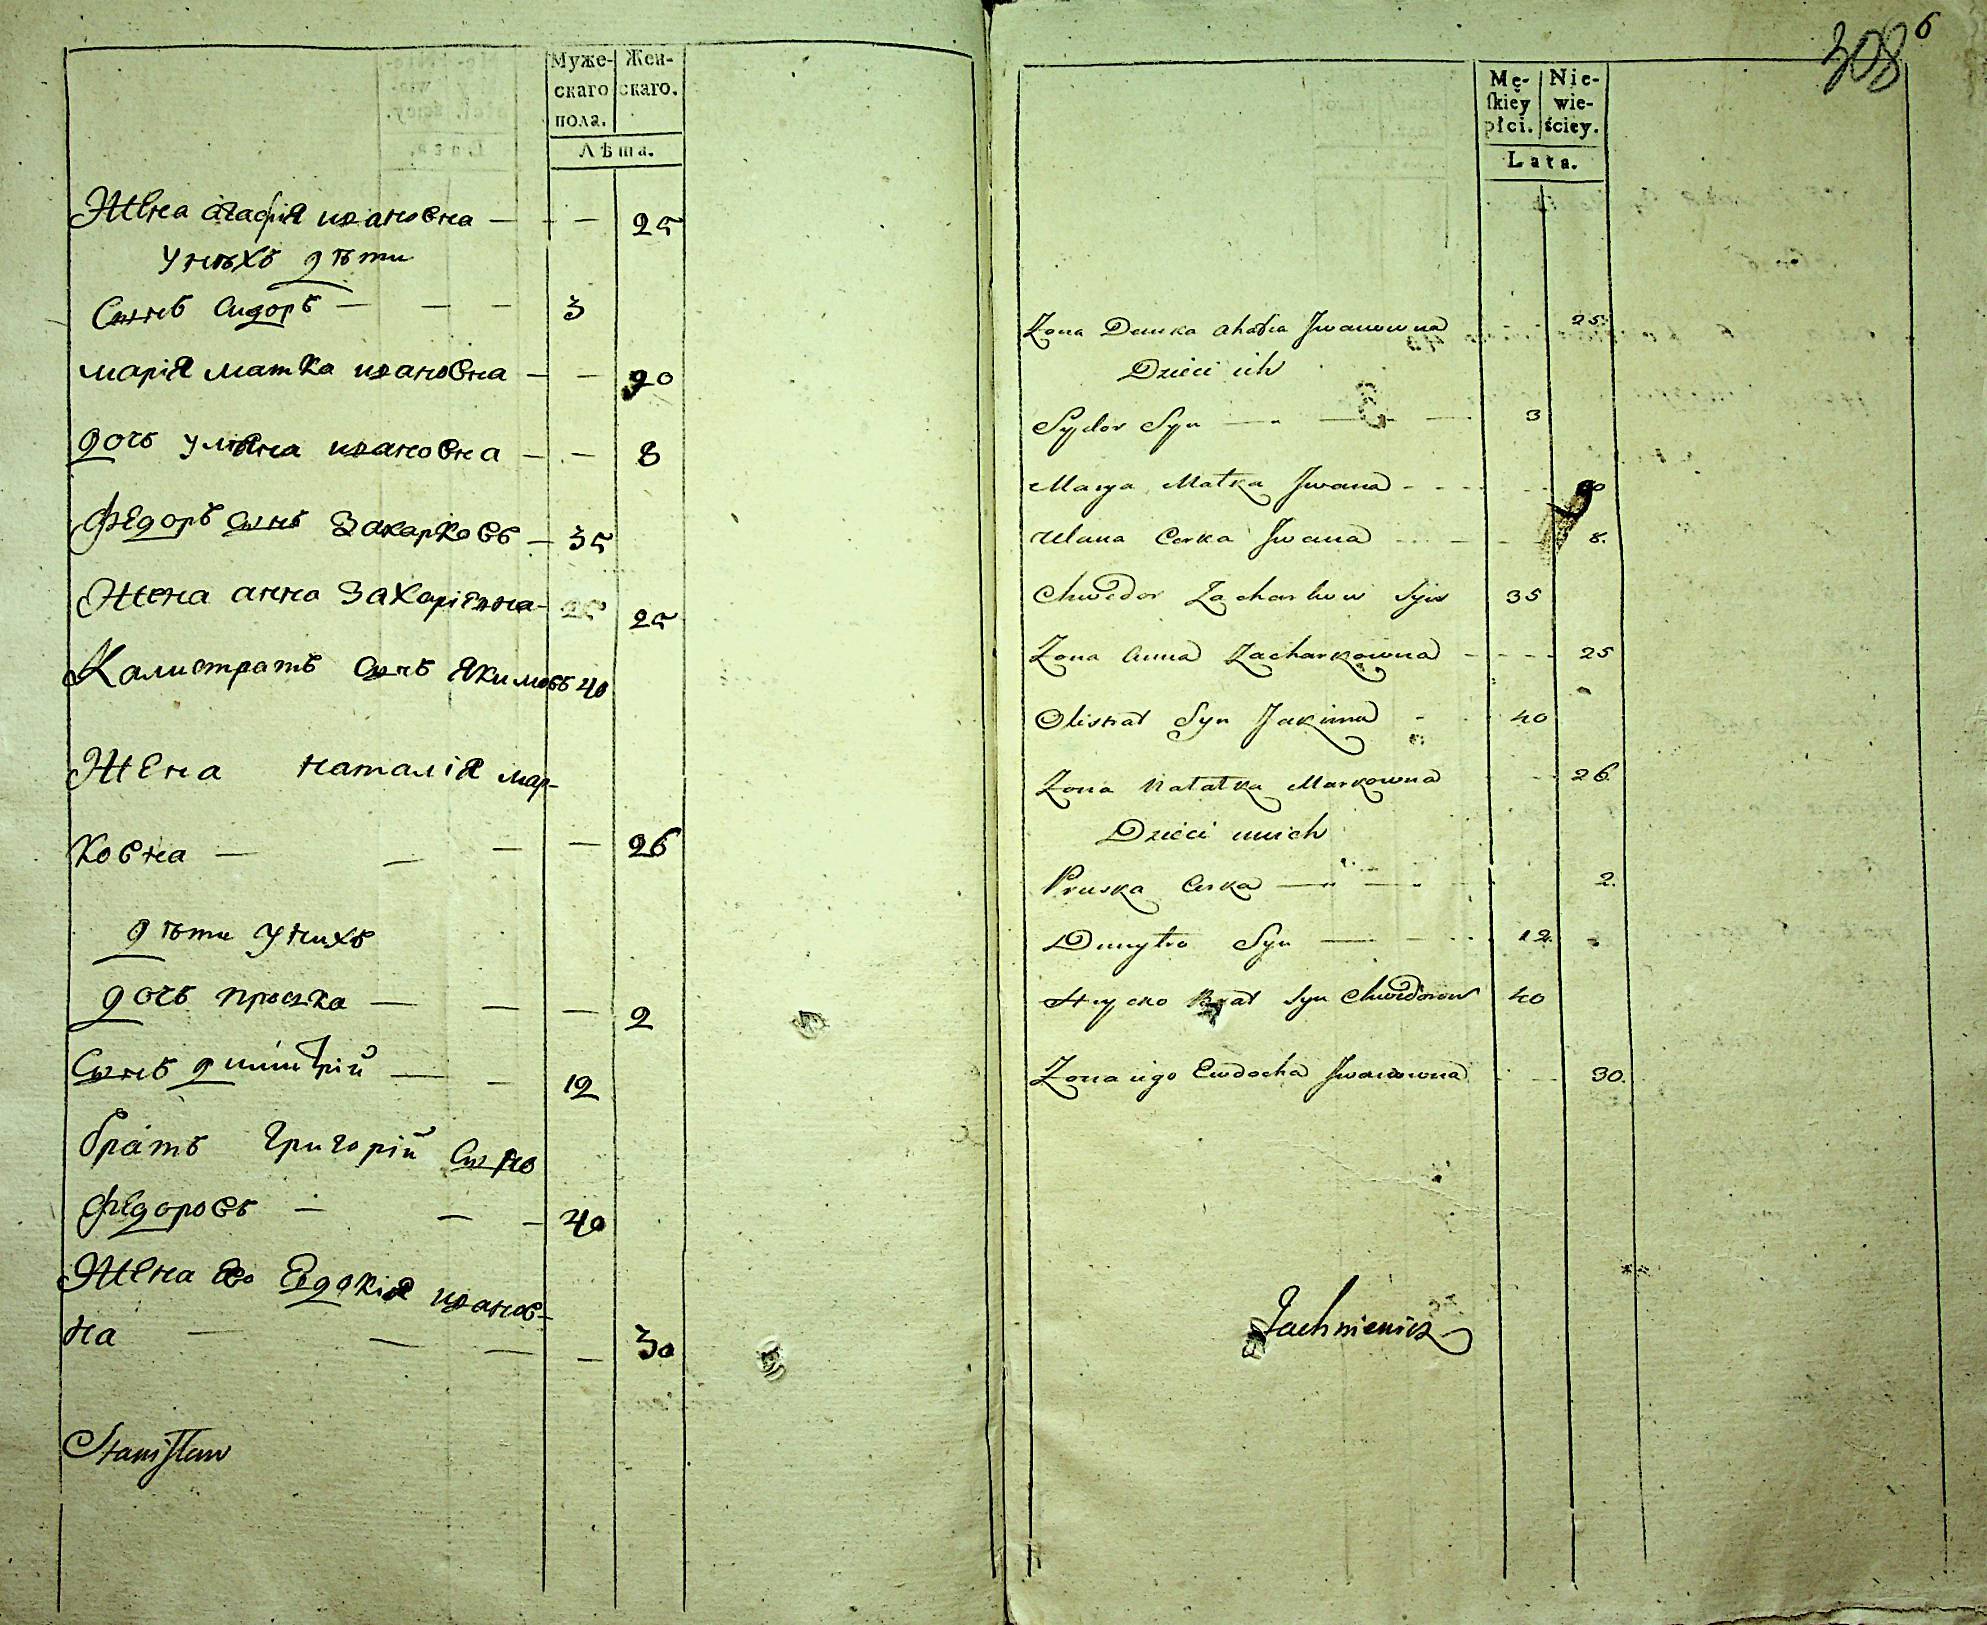 Муже- Жен-
скаго скаго.
пола.
Лѣта.
Жена агафия ивановна — — — 25
У нихъ дѣти
Сынъ Сидоръ — — — 3
мария матка ивановна — — 90
дочь уляна ивановна — — 8
Федоръ сынъ Захарковъ — 35
Жена анна Захаріевна 25
Калистратъ сынъ Якимовъ 40
Жена наталія мар-
ковна — — — — 26
дѣти у нихъ
дочь пруска — — — 2
Сынъ дмитрій — — 12
братъ Григорій сынъ
Федоровъ — — — 40
Жена его Евдокія иванов-
на — — — — 30
Stanisław
308 6
Mę- Nie-
ſkiey wie-
płci. ściey.
Lata.
Zona Demka ahafia Jwanowna 25
Dzieci ich
Sydor Syn — — — 3
Marya Matka Jwana - - - 90
Ulana Corka Jwana - - - 8.
Chwedor Zacharkow Syn 35
Zona Anna Zacharkowna - - - - 25
Olistrat Syn Jakima - 40
Zona Natalka Markowna - 26
Dzieci unich
Pruska Curka — — - 2.
Dmytro Syn — - - 12.
Hrycko Brat Syn Chwedorow 40
Zona iego Ewdocha Jwanowna - 30.
Jachniewicz